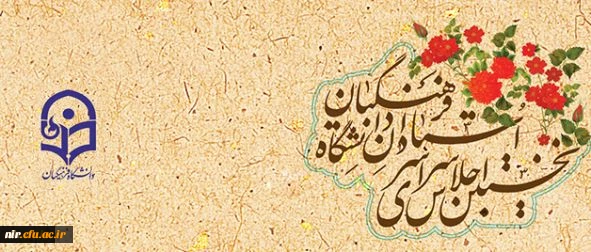 نخستین اجلاس سراسری
استادان دانشگاه
فرهنگیان
دانشگاه فرهنگیان
nir.cfu.ac.ir